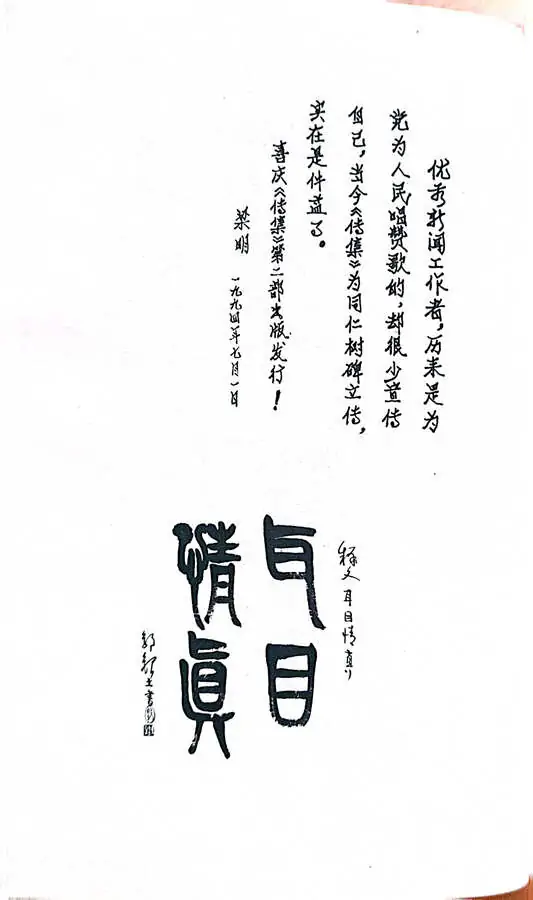 优秀新闻工作者，历来是为
党为人民唱赞歌的，却很少宣传
自己，当今《传集》为同仁树碑立传，
实在是件益事。
喜庆《传集》第二部出版发行！
梁明
一九九四年七月一日
释文 耳目情真
耳目
情真